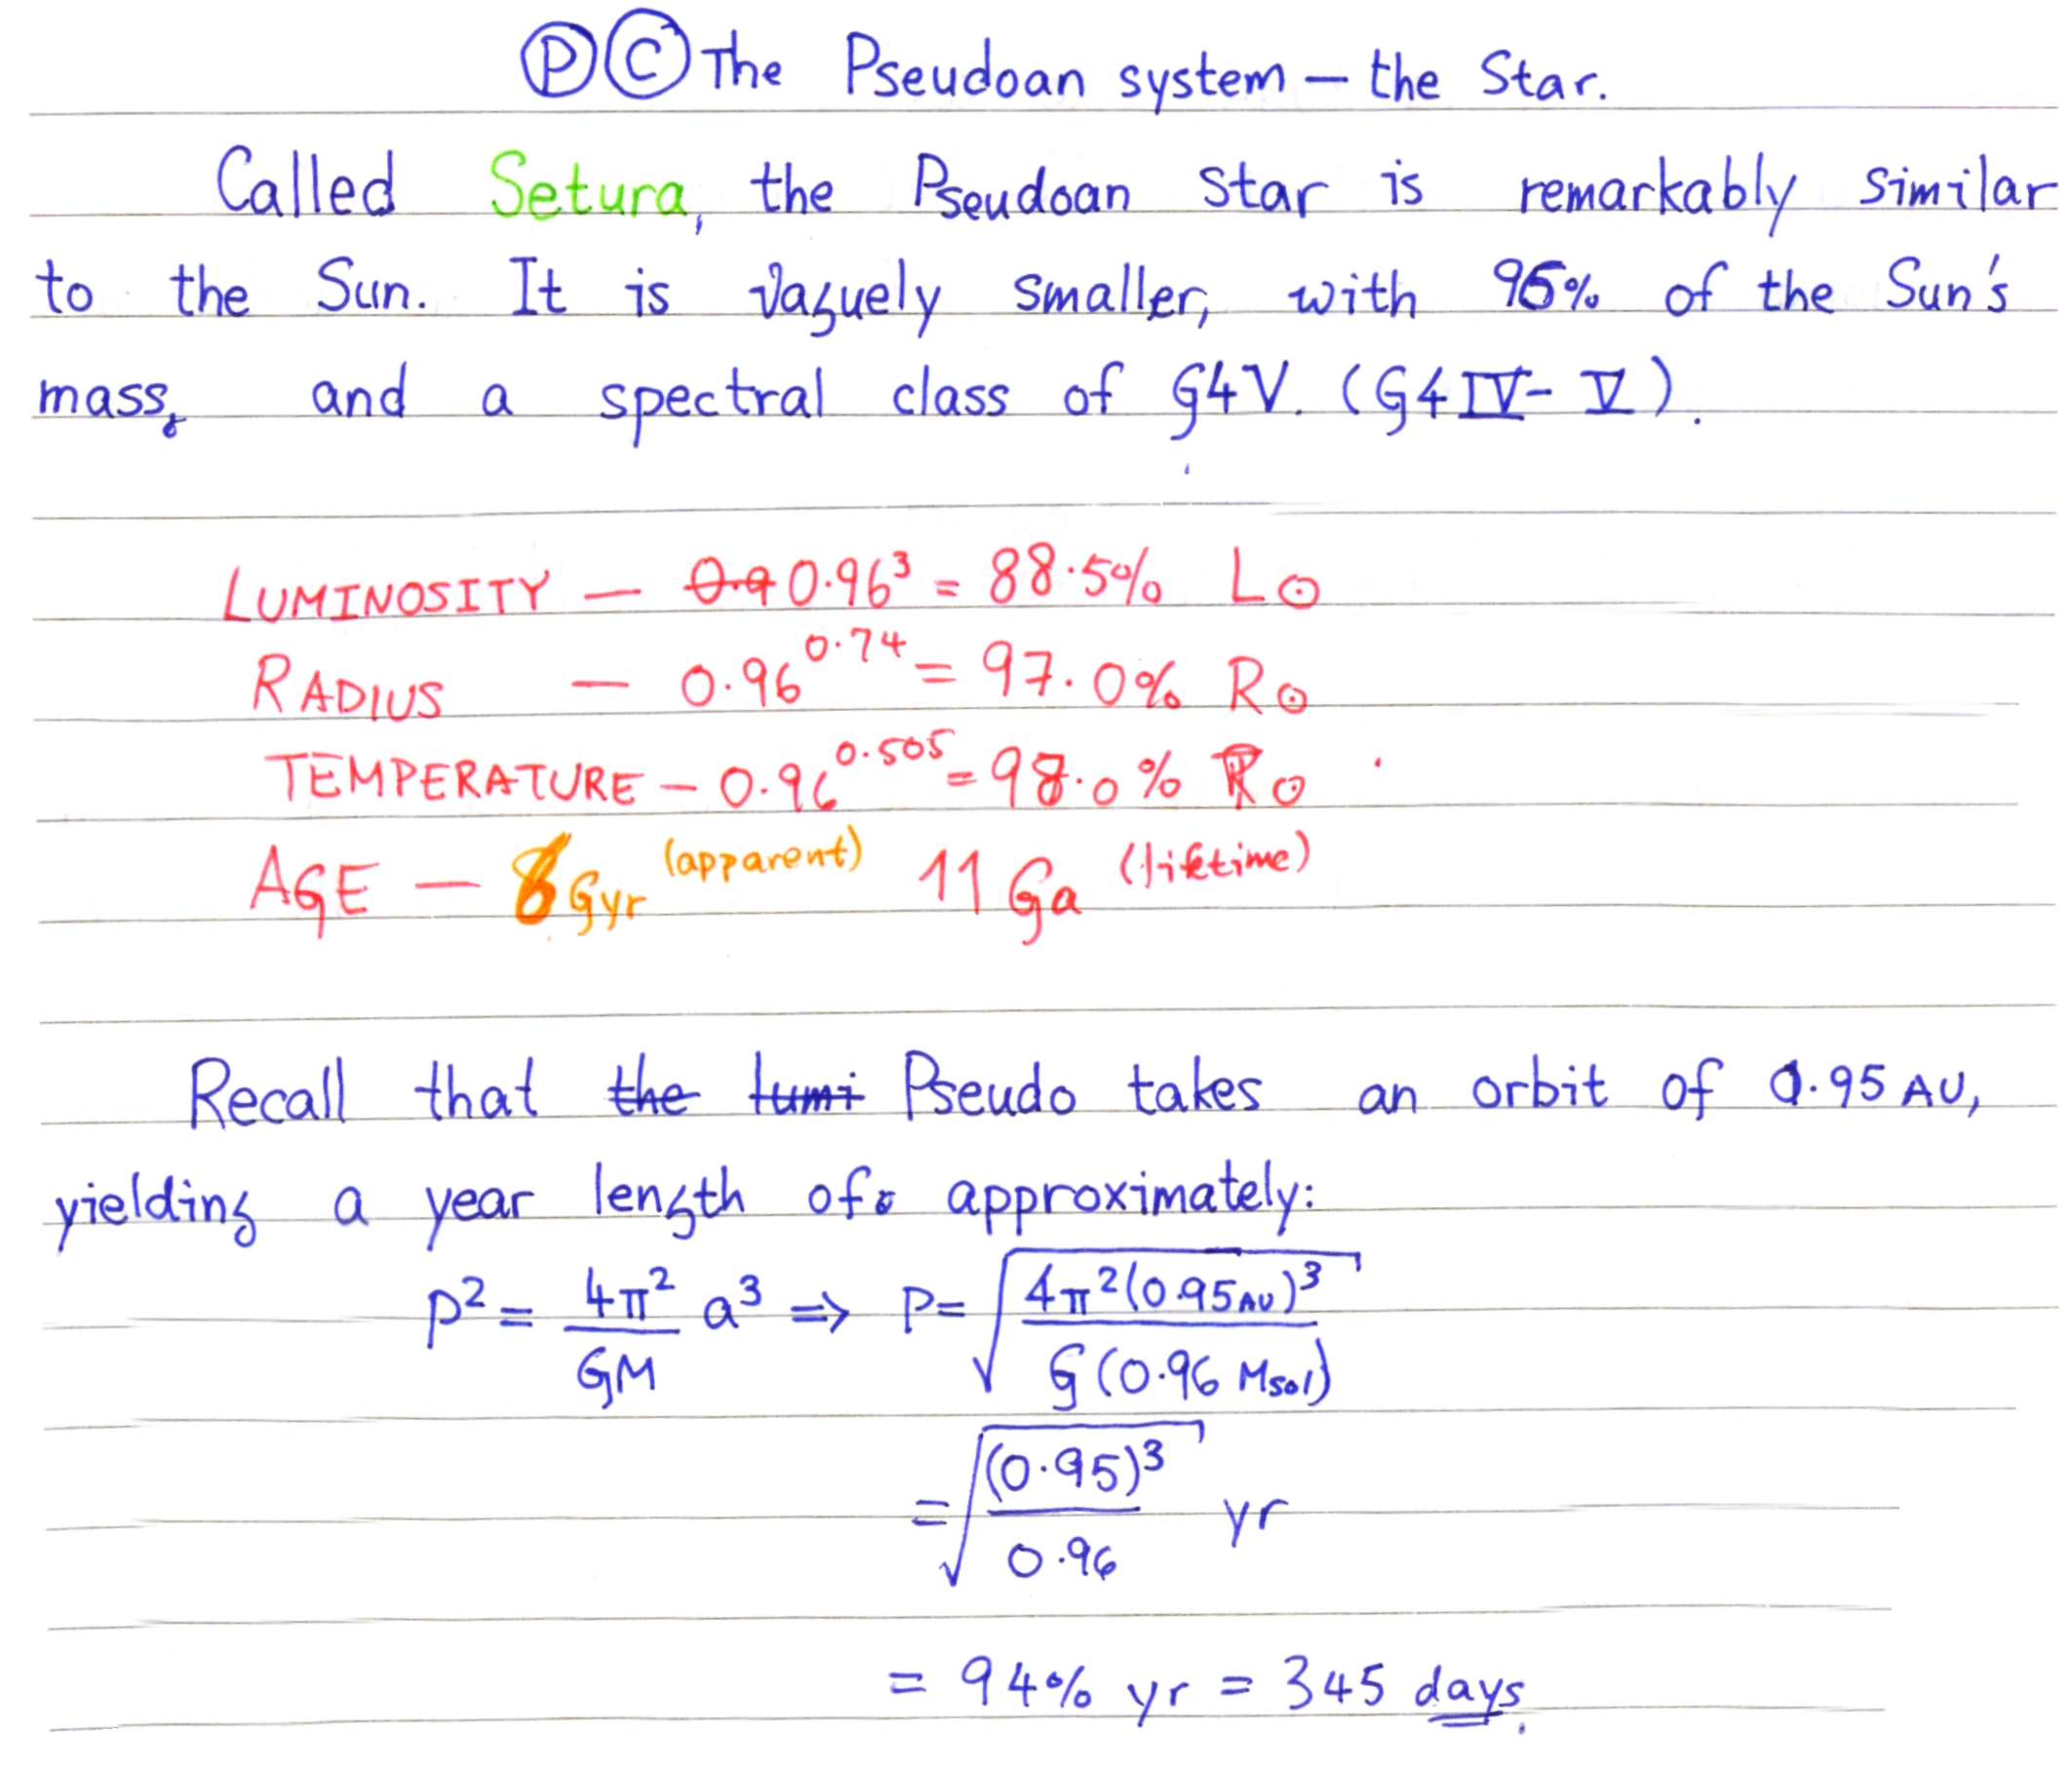 Ⓟ Ⓒ The Pseudoan system — the Star.
Called Setura, the Pseudoan Star is remarkably similar
to the Sun. It is vaguely smaller, with 96% of the Sun's
mass, and a spectral class of G4V. (G4 IV-V).
LUMINOSITY — 0.9 0.96³ = 88.5% L⊙
RADIUS — 0.96^0.74 = 97.0% R⊙
TEMPERATURE — 0.96^0.505 = 98.0% T⊙
AGE — 6 Gyr (apparent) 11 Ga (lifetime)
Recall that the lumi Pseudo takes an orbit of 0.95 AU,
yielding a year length of approximately:
P² = 4π²/GM a³ => P = √(4π²(0.95 AU)³ / G(0.96 Msol))
= √((0.95)³ / 0.96) yr
= 94% yr = 345 days.